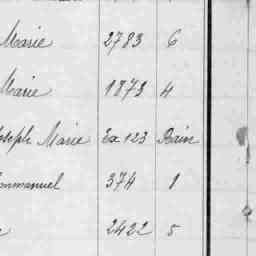 Marie 2783 6
Marie 1873 4
Joseph Marie Ex 123 Bain
Emmanuel 374 1
2422 5